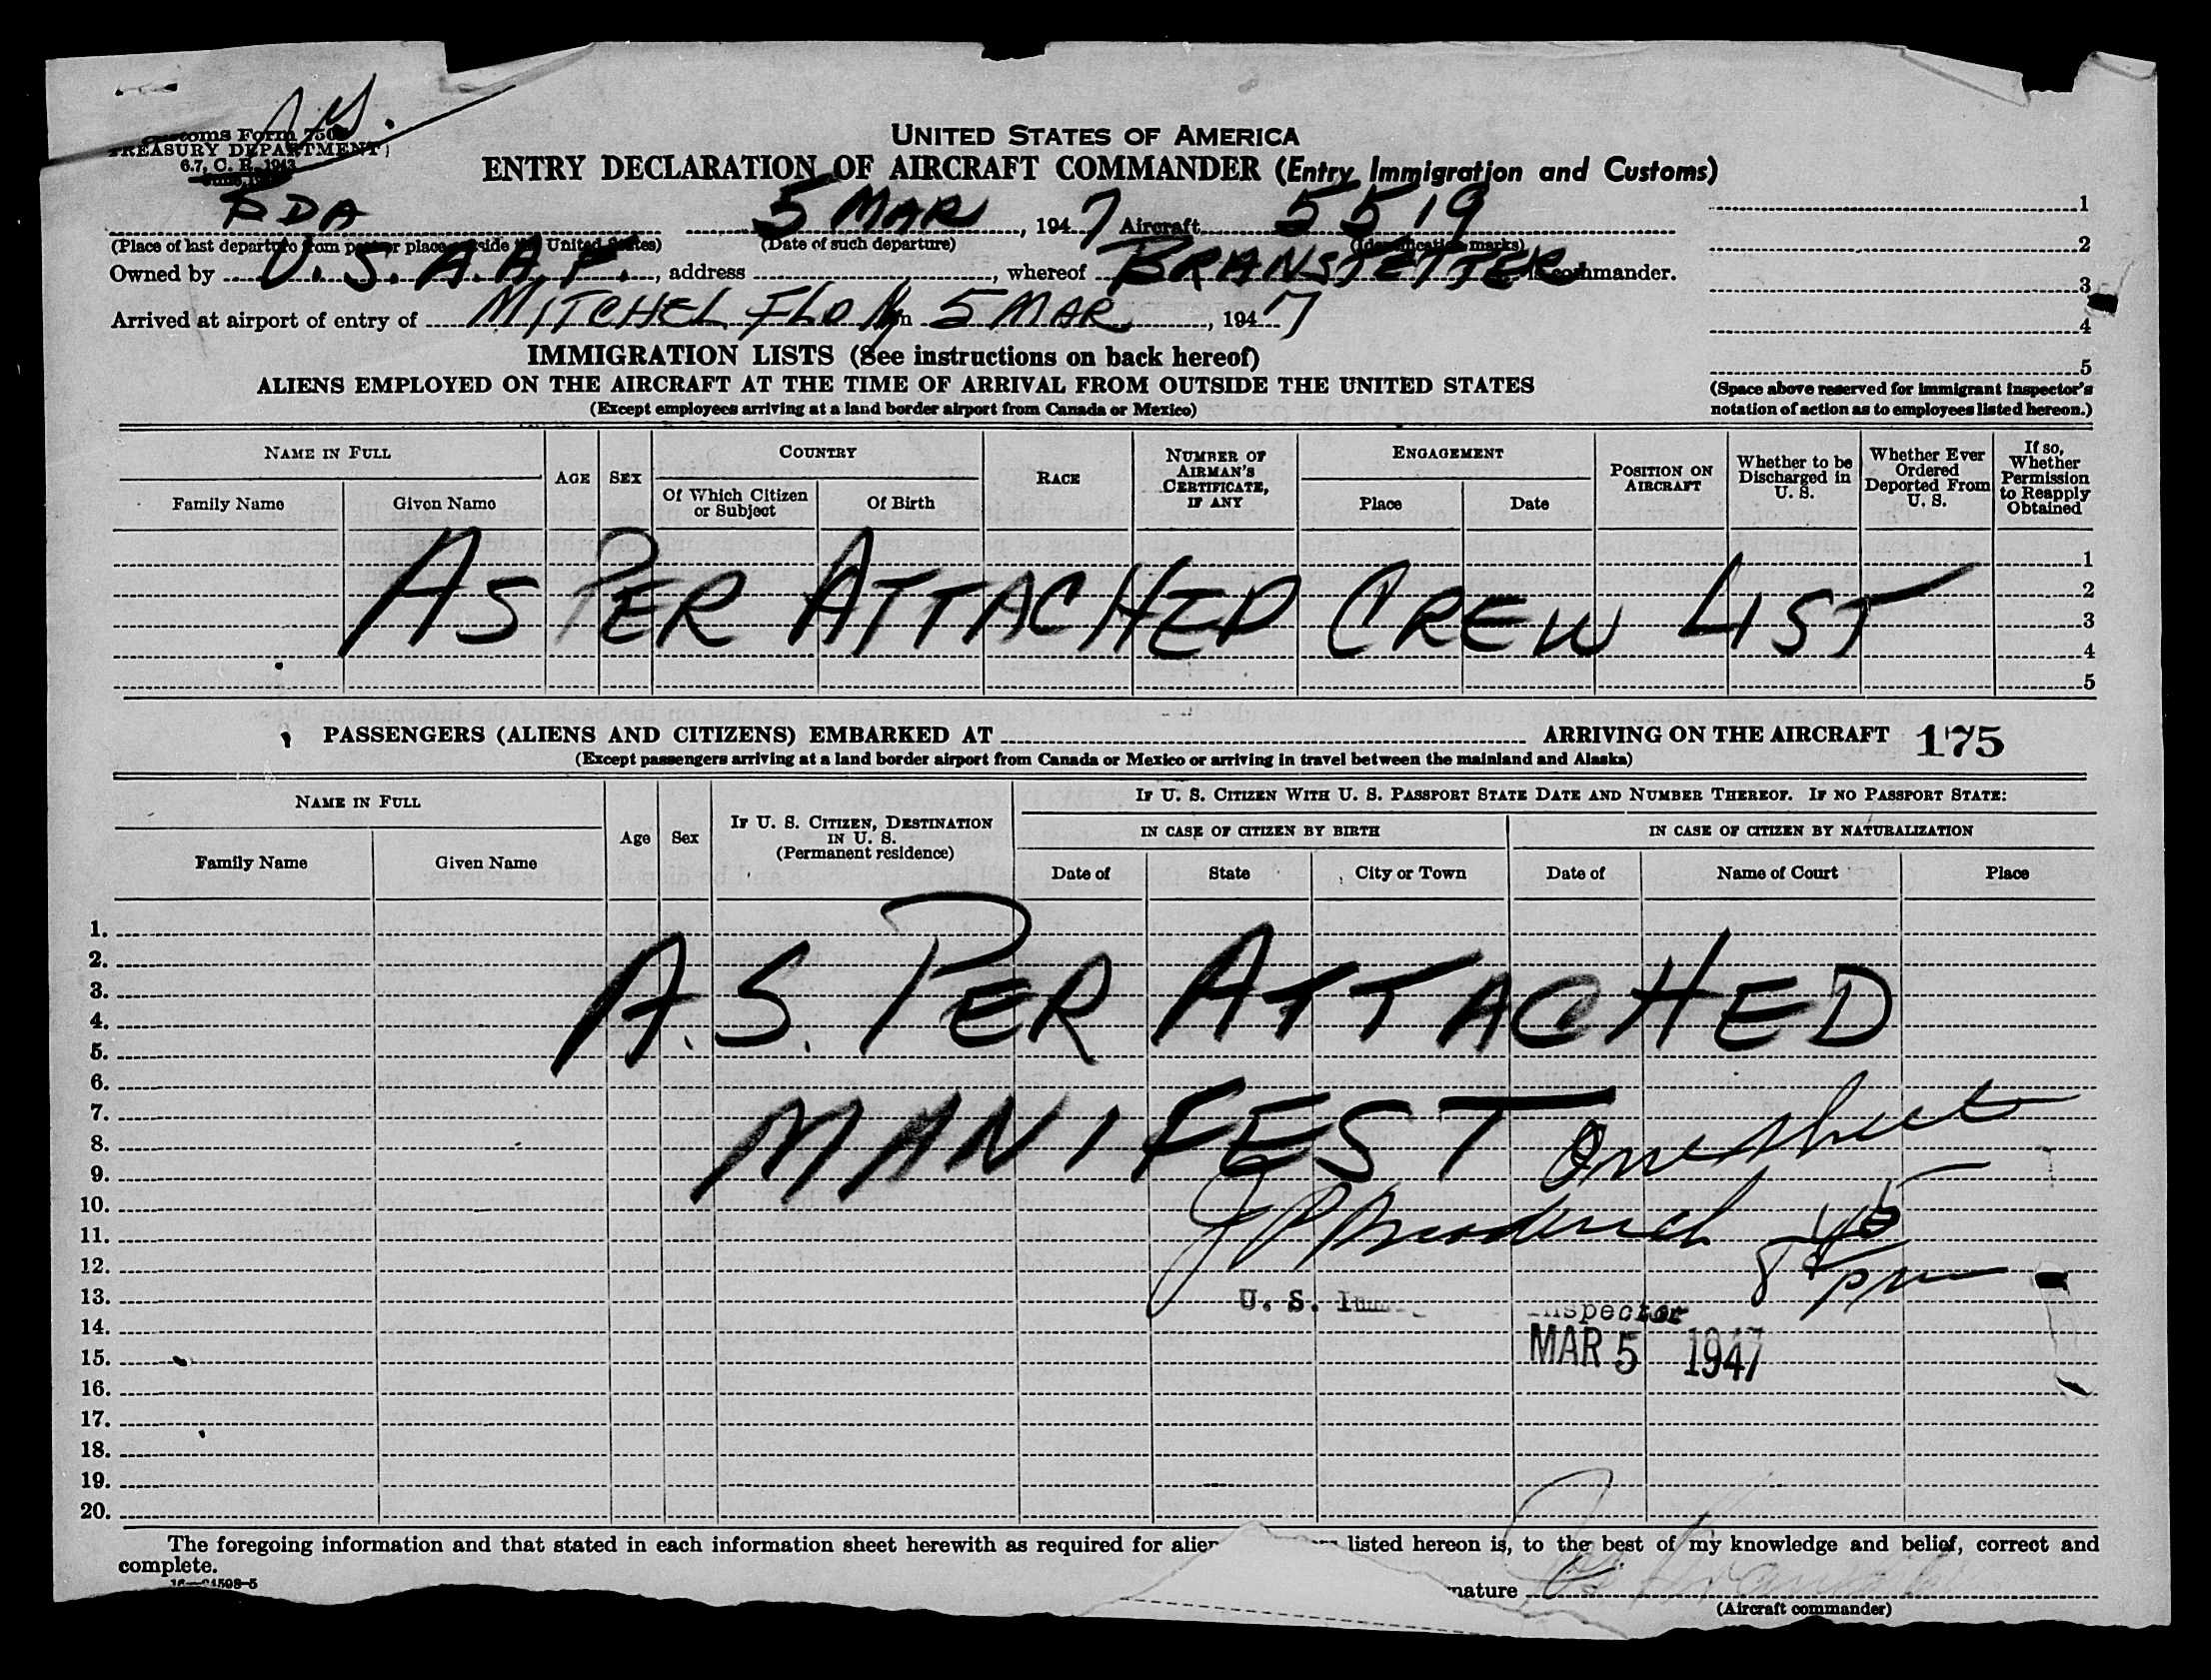 Customs Form 750
TREASURY DEPARTMENT
6.7, C. R. 1943
UNITED STATES OF AMERICA
ENTRY DECLARATION OF AIRCRAFT COMMANDER (Entry Immigration and Customs)
PDA 5 MAR, 1947 Aircraft 5519
(Place of last departure from port or place outside the United States) (Date of such departure) (Identification marks)
Owned by U. S. A. A. F., address, whereof BRANSTETTER is commander.
Arrived at airport of entry of MITCHEL FLD NY on 5 MAR, 1947
1
2
3
4
5
(Space above reserved for immigrant inspector's
notation of action as to employees listed hereon.)
IMMIGRATION LISTS (See instructions on back hereof)
ALIENS EMPLOYED ON THE AIRCRAFT AT THE TIME OF ARRIVAL FROM OUTSIDE THE UNITED STATES
(Except employees arriving at a land border airport from Canada or Mexico)
NAME IN FULL
Family Name Given Name
AGE SEX
COUNTRY
Of Which Citizen
or Subject
Of Birth
RACE
NUMBER OF
AIRMAN'S
CERTIFICATE,
IF ANY
ENGAGEMENT
Place Date
POSITION ON
AIRCRAFT
Whether to be
Discharged in
U. S.
Whether Ever
Ordered
Deported From
U. S.
If so,
Whether
Permission
to Reapply
Obtained
AS PER ATTACHED CREW LIST
1
2
3
4
5
PASSENGERS (ALIENS AND CITIZENS) EMBARKED AT ARRIVING ON THE AIRCRAFT 175
(Except passengers arriving at a land border airport from Canada or Mexico or arriving in travel between the mainland and Alaska)
NAME IN FULL
Family Name Given Name
Age Sex
IF U. S. CITIZEN, DESTINATION
IN U. S.
(Permanent residence)
IF U. S. CITIZEN WITH U. S. PASSPORT STATE DATE AND NUMBER THEREOF. IF NO PASSPORT STATE:
IN CASE OF CITIZEN BY BIRTH IN CASE OF CITIZEN BY NATURALIZATION
Date of State City or Town Date of Name of Court Place
1.
2.
3.
4.
5.
6.
7.
8.
9.
10.
11.
12.
13.
14.
15.
16.
17.
18.
19.
20.
A.S. PER ATTACHED
MANIFEST One sheet
8 45 pm
U. S. Inspector
MAR 5 1947
The foregoing information and that stated in each information sheet herewith as required for listed hereon is, to the best of my knowledge and belief, correct and
complete.
(Aircraft commander)